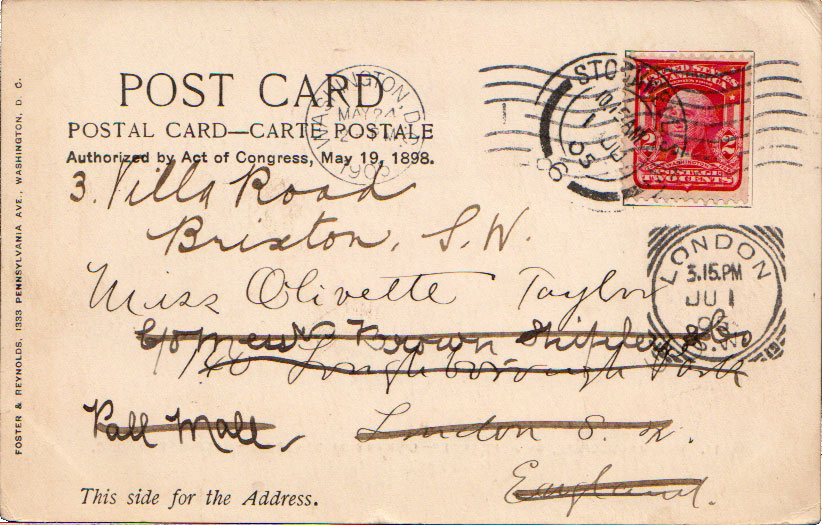 POST CARD
POSTAL CARD—CARTE POSTALE
Authorized by Act of Congress, May 19, 1898.
WASHINGTON, D.
MAY 24
1905
10
JU 1
05
86
UNITED STATES
POSTAGE
TWO CENTS
2
LONDON
3.15.PM
JU 1
S.W.
3. Villa Road
Brixton, S.W.
Miss Olivette Taylor
c/o Messrs Brown Shipley & Co
Loughborough Park
Pall Mall,
London S. W.
England.
This side for the Address.
FOSTER & REYNOLDS, 1333 PENNSYLVANIA AVE., WASHINGTON, D. C.